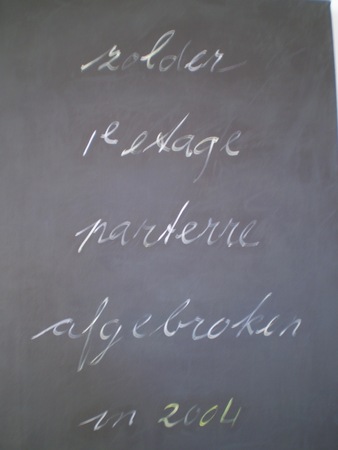 zolder
1e etage
parterre
afgebroken
in 2004